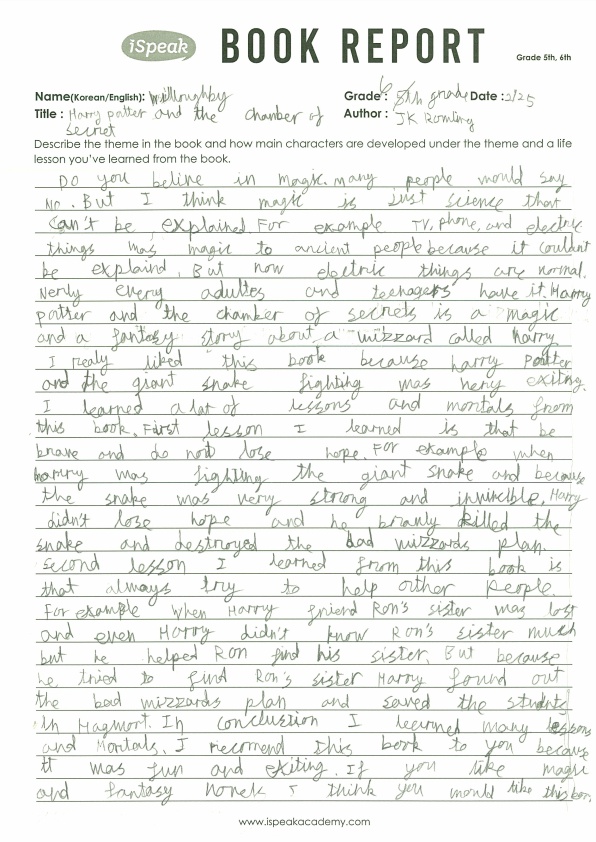 iSpeak BOOK REPORT
Grade 5th, 6th
Name(Korean/English): Willoughby Grade : 6 5th grade Date : 2/25
Title : Harry potter and the chamber of Author : JK Romling
secret
Describe the theme in the book and how main characters are developed under the theme and a life
lesson you've learned from the book.
Do you belive in magic. many people would say
No. But I think magic is Just science that
can't be explained For example TV, phone, and electric
things was magic to ancient people because it couldn't
be explaind. But now electric things are normal.
Nerly every adultes and teenagers have it. Harry
potter and the chamber of secrets is a magic
and a fantasy story about a wizzard called harry
I realy liked this book because harry potter
and the giant snake fighting was very exiting.
I learned a lot of lessons and mortals from
this book. First lesson I learned is that be
brave and do not lose hope. For example when
harry was fighting the giant snake and because
the snake was very strong and invincible, Harry
didn't lose hope and he bravly killed the
snake and destroyed the bad wizzards plan.
Second lesson I learned from this book is
that always try to help other people.
For example when Harry friend Ron's sister was lost
and even Harry didn't know Ron's sister much
but he helped Ron find his sister. But because
he tried to find Ron's sister Harry found out
the bad wizzards plan and saved the students
in Hagwort. In conclustion I learned many lessons
and Mortals. I recomend this book to you because
It was fun and exiting. If you like magic
and fantasy I think you would like this
www.ispeakacademy.com